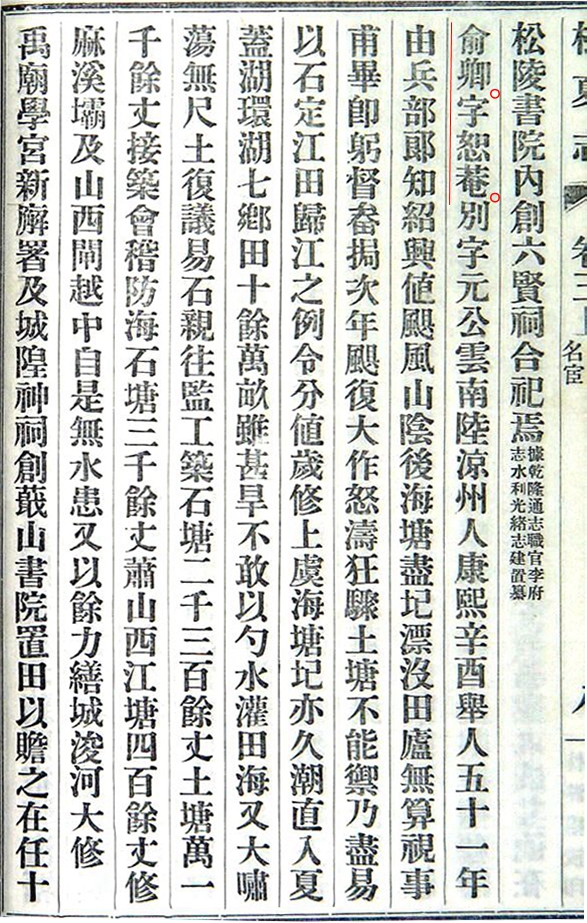 松夏志
卷三上
名宦
八
松陵書院內創六賢祠合祀焉據乾隆通志職官李府志水利光緒志建置纂
俞卿字恕菴別字元公雲南陸涼州人康熙辛酉舉人五十一年
由兵部郎知紹興值颶風山陰後海塘盡圮漂沒田廬無算視事
甫畢即躬督畚挶次年颶復大作怒濤狂驟土塘不能禦乃盡易
以石定江田歸江之例令分值歲修上虞海塘圮亦久潮直入夏
蓋湖環湖七鄉田十餘萬畝雖甚旱不敢以勺水灌田海又大嘯
蕩無尺土復議易石親往監工築石塘二千三百餘丈土塘萬一
千餘丈接築會稽防海石塘三千餘丈蕭山西江塘四百餘丈修
麻溪壩及山西閘越中自是無水患又以餘力繕城浚河大修
禹廟學宮新廨署及城隍神祠創蕺山書院置田以贍之在任十